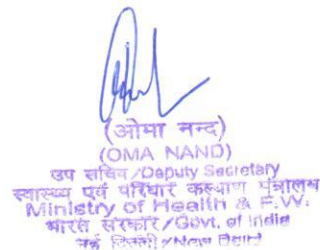 (ओमा नन्द)
(OMA NAND)
उप सचिव/Deputy Secretary
स्वास्थ्य एवं परिवार कल्याण मंत्रालय
Ministry of Health & F.W.
भारत सरकार/Govt. of India
नई दिल्ली/New Delhi